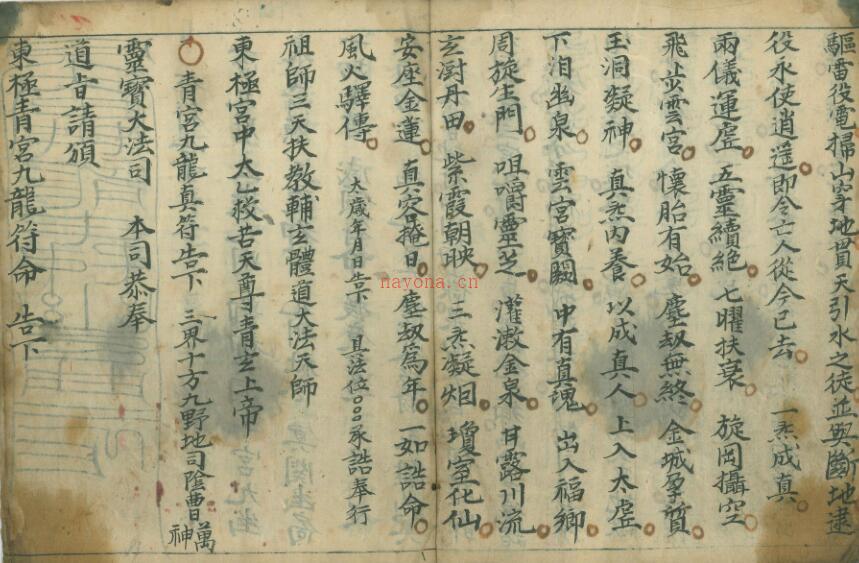 驅雷役電掃山穿地貫天引水之徒並與斷地逮
役永使逍遥即今亡人從今已去 一炁成真
兩儀運虛 五靈續絶 七曜扶衰 旋岡攝空
飛步雲宫 懷胎有始 塵刼無終 金城孕質
玉洞凝神 真炁内養 以成真人 上入太虛
下泪幽泉 雲宫寳闕 中有真魂 出入福鄉
周旋生門 咀嚼靈芝 灌漱金泉 甘露川流
玄澍丹田 紫霞朝映 三炁凝烟 瓊室化仙
安座金蓮 真容掩日 塵刼爲年 一如誥命
風火驛傳 太歲年月日告下 具法位○○承誥奉行
祖師三天扶教輔玄體道大法天師
東極宫中太乙救苦天尊青玄上帝
○ 青宫九龍真符告下 三界十方九野地司陰曹萬神
靈寳大法司 本司恭奉
道旨請頒
東極青宫九龍符命 告下
nayona.cn